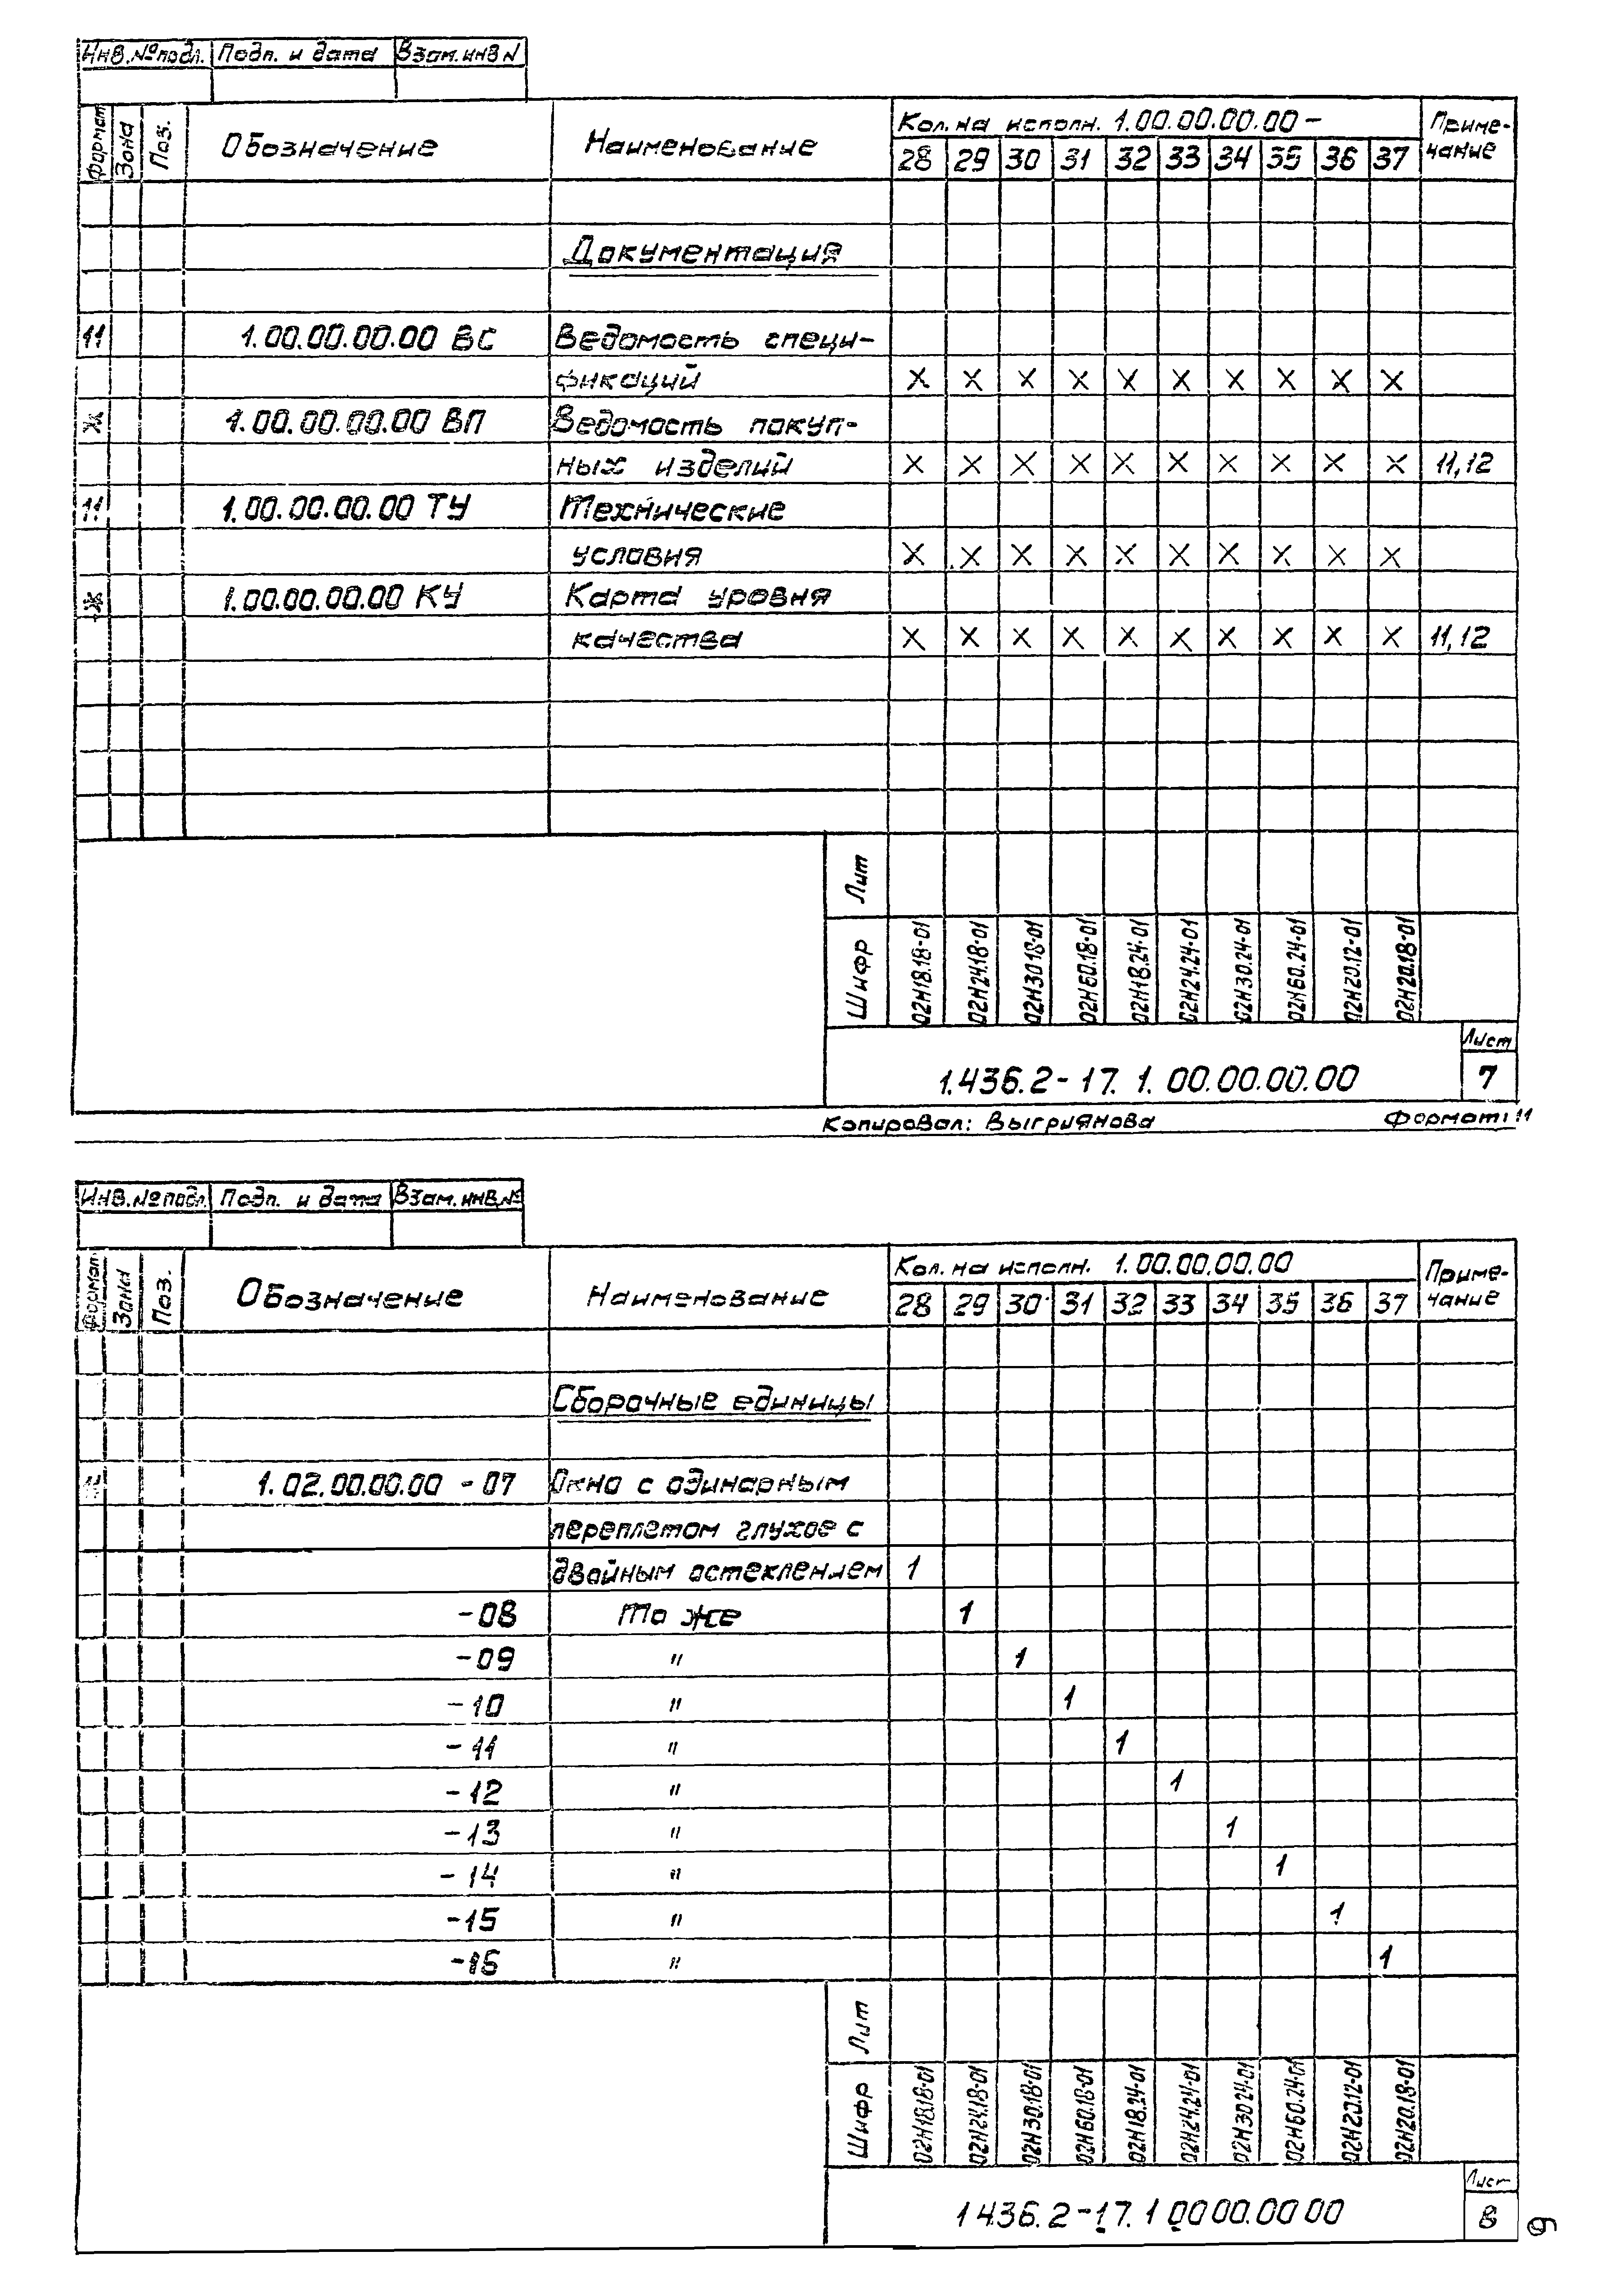 Инв.№подл. Подп. и дата Взам.инв N
Формат Зона Поз. Обозначение Наименование Кол. на исполн. 1.00.00.00.00 – Приме-
чание
28 29 30 31 32 33 34 35 36 37
Документация
11 1.00.00.00.00 ВС Ведомость специ-
фикаций X X X X X X X X X X
* 1.00.00.00.00 ВП Ведомость покуп-
ных изделий X X X X X X X X X X 11,12
11 1.00.00.00.00 ТУ Технические
условия X X X X X X X X X X
* 1.00.00.00.00 КУ Карта уровня
качества X X X X X X X X X X 11,12
Лит
Шифр 02Н18.18-01 02Н24.18-01 02Н30.18-01 02Н60.18-01 02Н18.24-01 02Н24.24-01 02Н30.24-01 02Н60.24-01 02Н20.12-01 02Н20.18-01
1.436.2-17. 1. 00.00.00.00 Лист
7
Копировал: Выгриянова Формат: 11
Инв.№подл. Подп. и дата Взам.инв.№
Формат Зона Поз. Обозначение Наименование Кол. на исполн. 1.00.00.00.00 Приме-
чание
28 29 30 31 32 33 34 35 36 37
Сборочные единицы
11 1. 02.00.00.00 - 07 Окно с одинарным
переплетом глухое с
двойным остеклением 1
-08 То же 1
-09 " 1
-10 " 1
-11 " 1
-12 " 1
-13 " 1
-14 " 1
-15 " 1
-16 " 1
Лит
Шифр 02Н18.18-01 02Н24.18-01 02Н30.18-01 02Н60.18-01 02Н18.24-01 02Н24.24-01 02Н30.24-01 02Н60.24-01 02Н20.12-01 02Н20.18-01
1 436. 2-17. 1 00 00.00 00 Лист
8
9